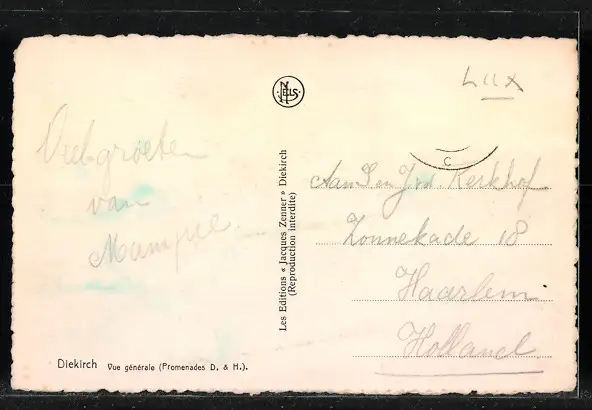 LUX
NELS
C
Veel groeten
van
Aan D en J. v.d. Kerkhof
Zonnekade 18
Haarlem
Holland
Les Editions « Jacques Zenner » Diekirch
(Reproduction interdite)
Diekirch Vue générale (Promenades D. & H.).